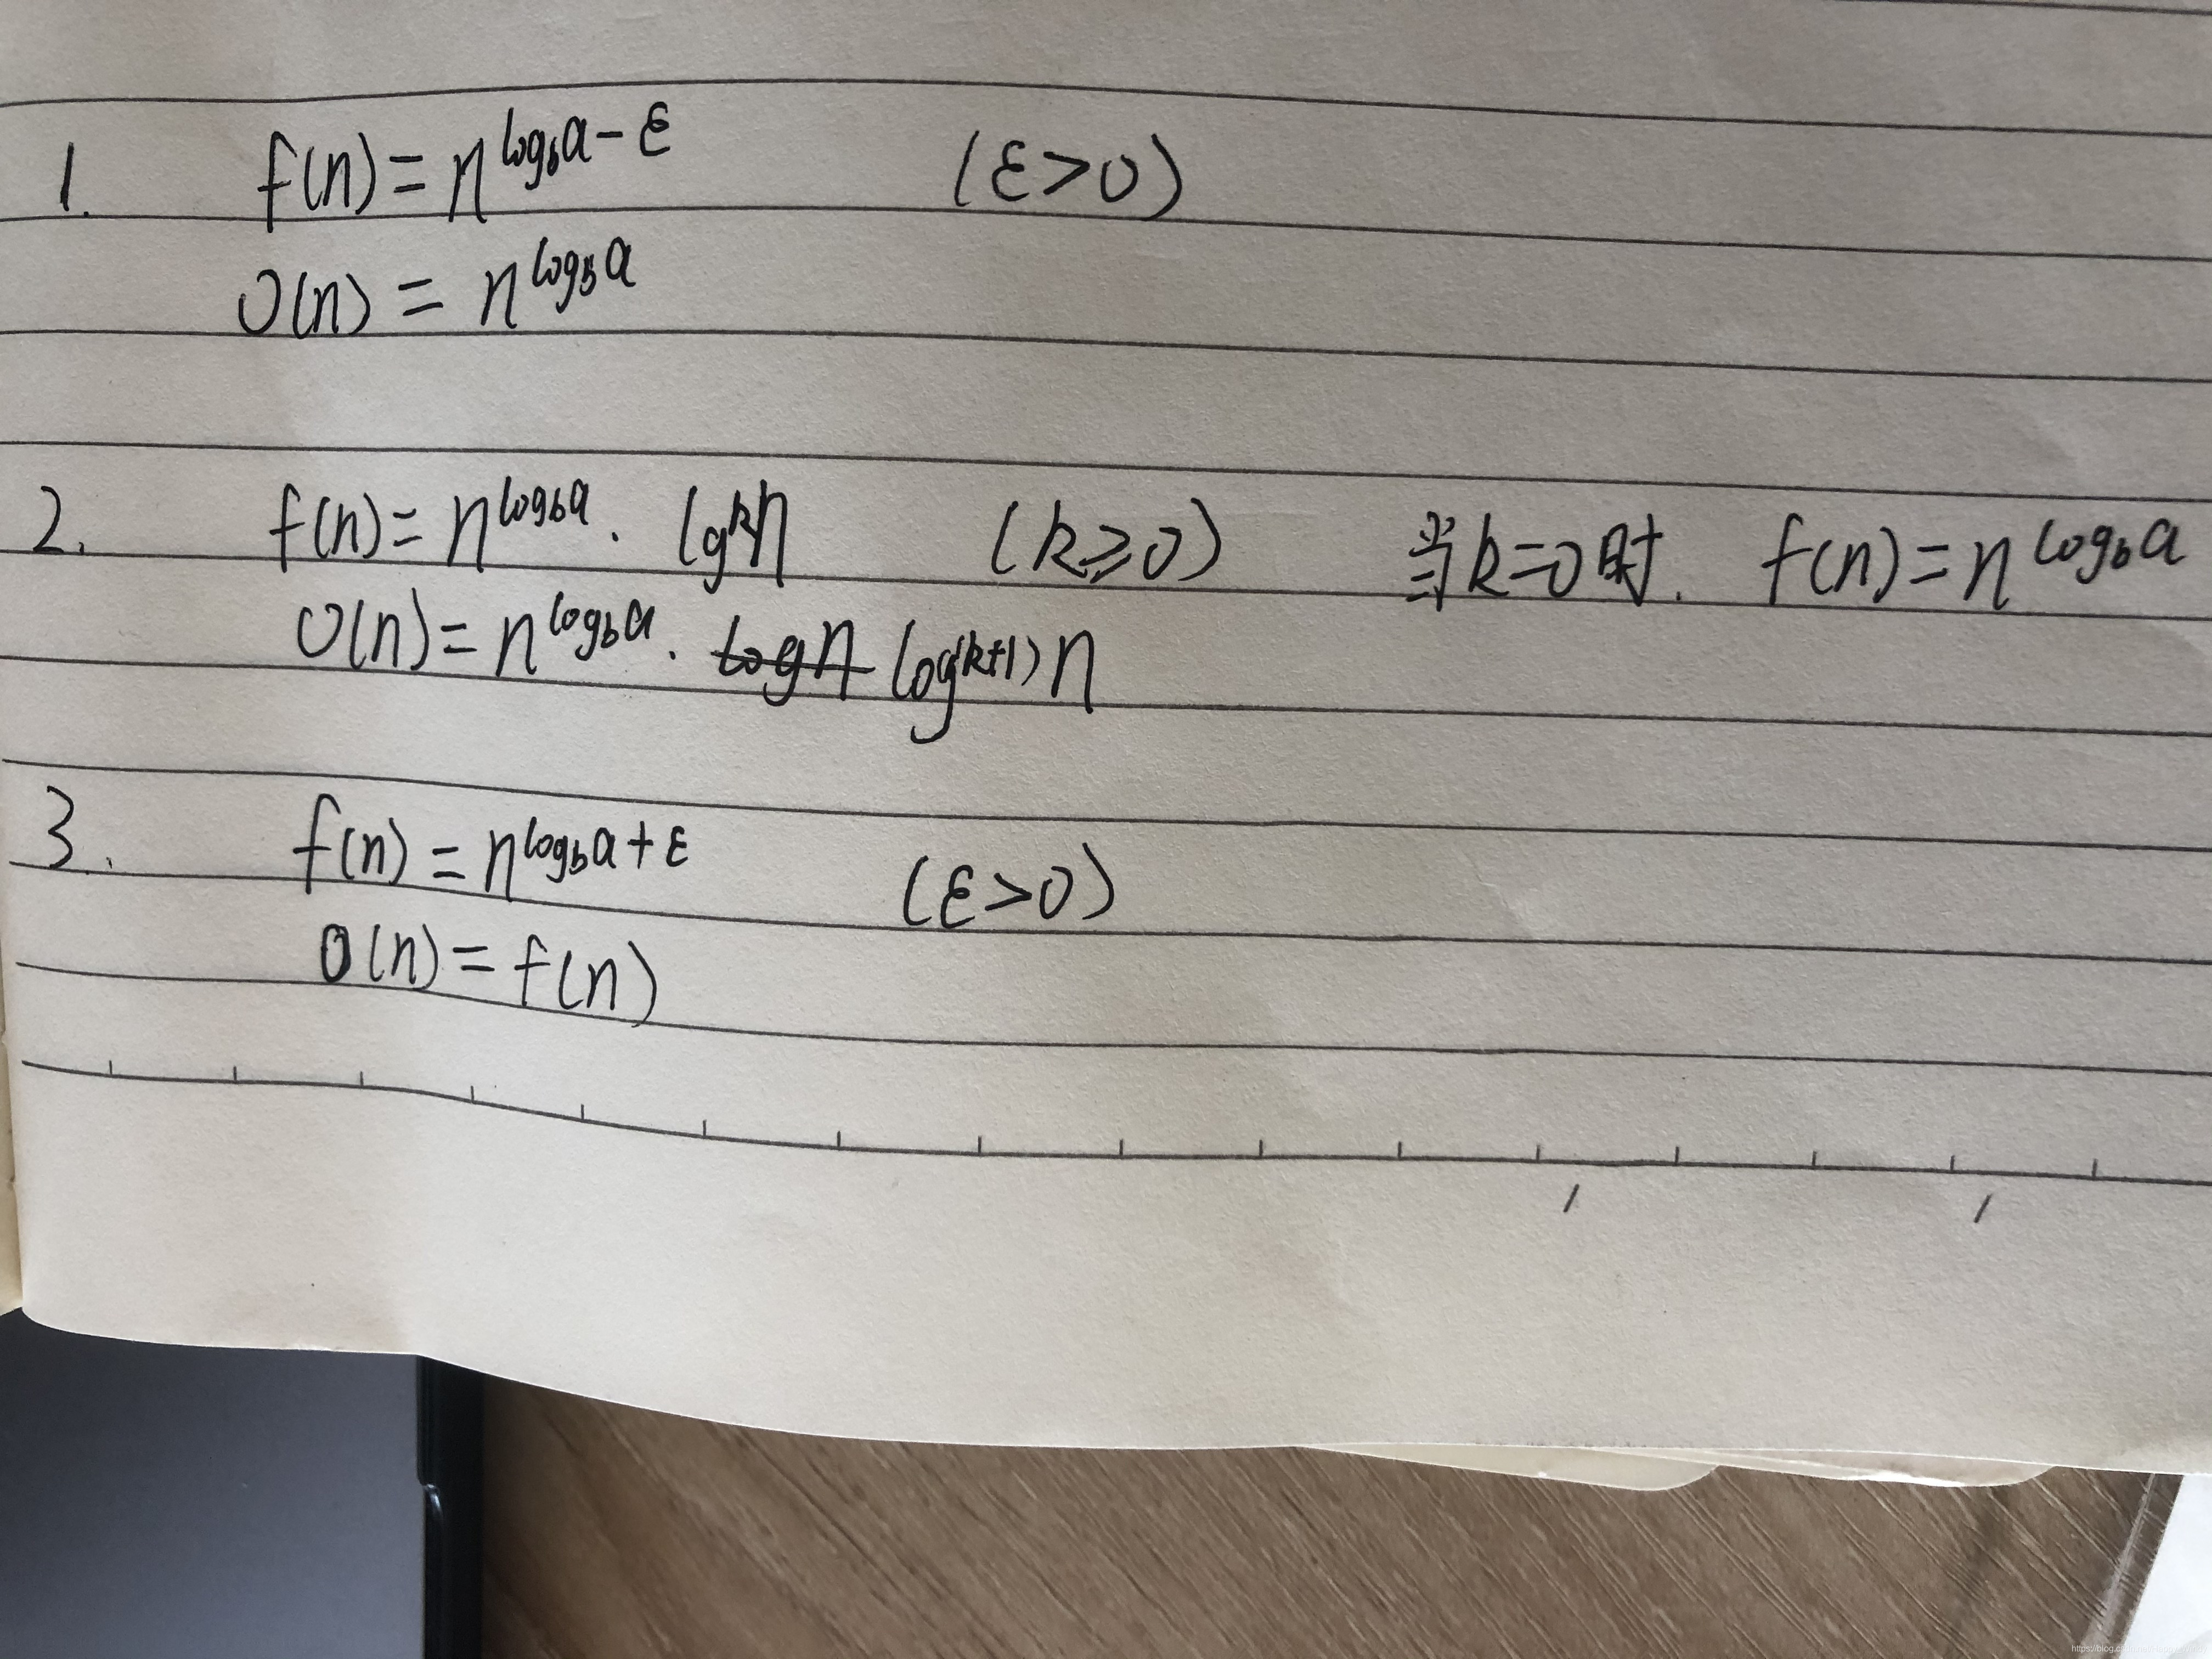 1. f(n) = n^{log_b a - ε} (ε>0)
O(n) = n^{log_b a}
2. f(n) = n^{log_b a} · lg^k n (k≥0) 当k=0时. f(n) = n^{log_b a}
O(n) = n^{log_b a} · ~~log n~~ log^{(k+1)} n
3. f(n) = n^{log_b a + ε} (ε>0)
O(n) = f(n)